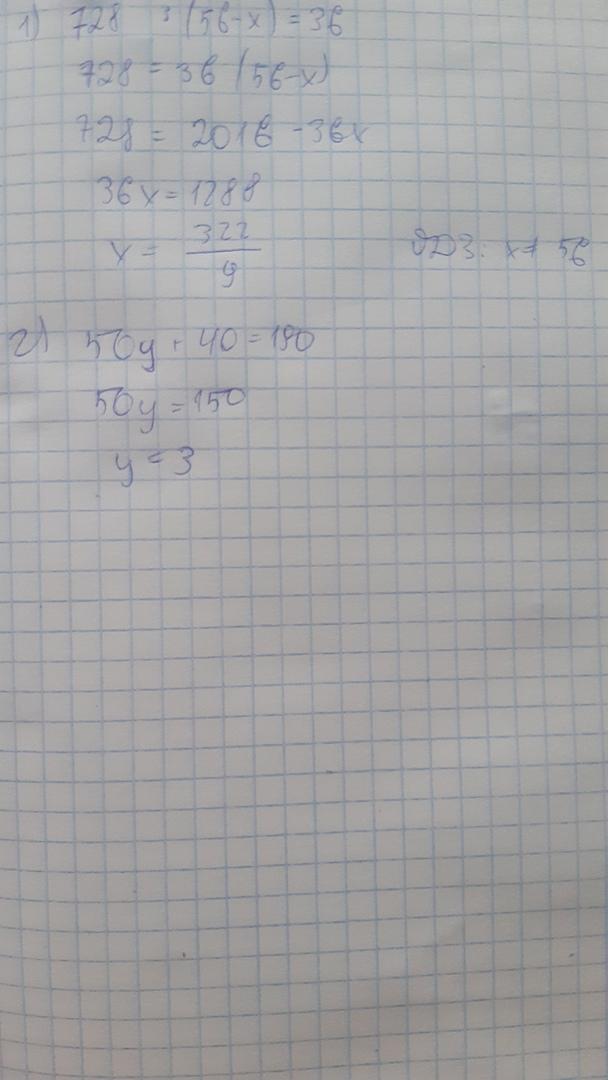 1) 728 : (56-x) = 36
728 = 36 (56-x)
728 = 2016 - 36x
36x = 1288
x = 322/9
ОДЗ: x ≠ 56
2) 50y + 40 = 190
50y = 150
y = 3